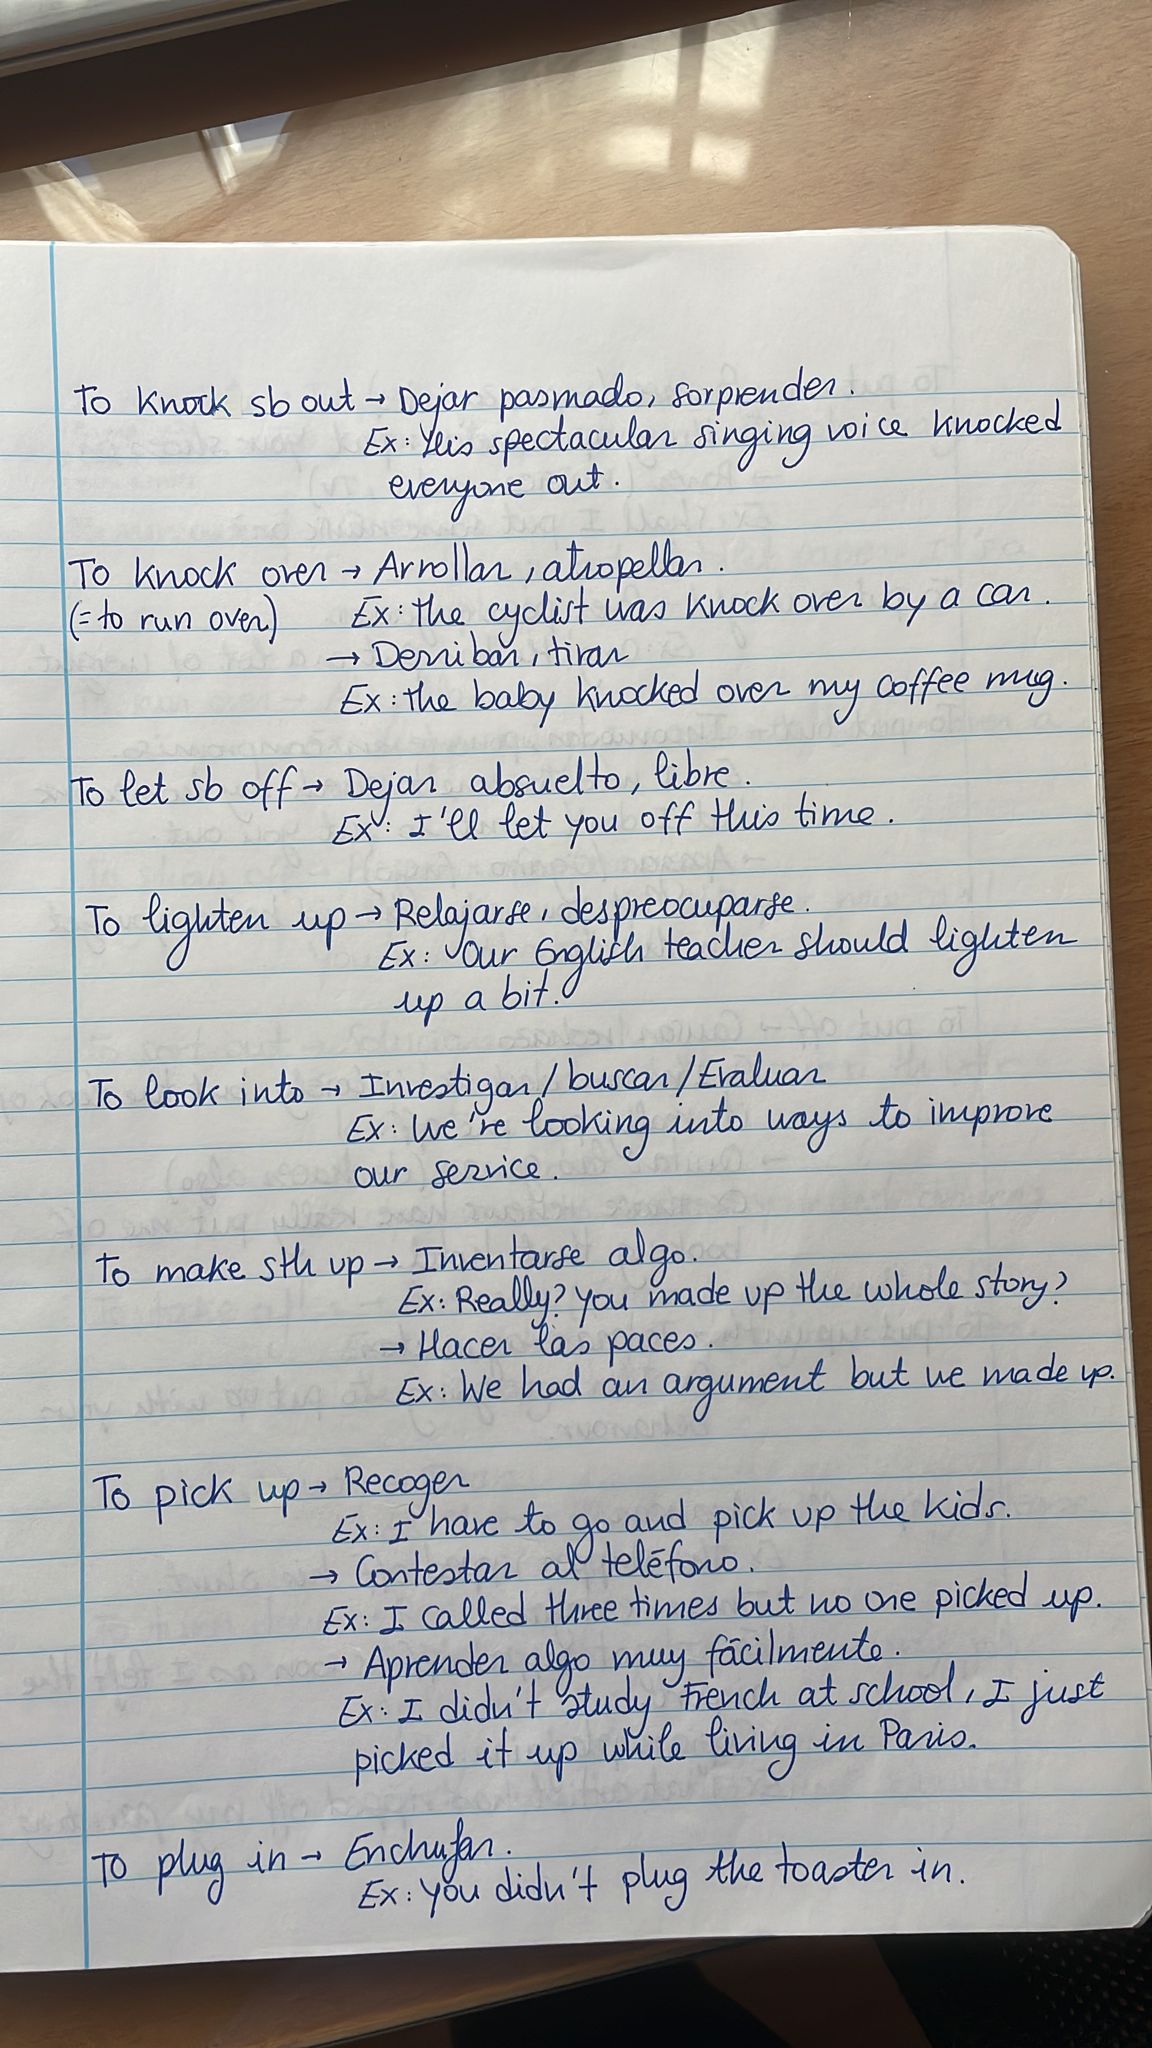 To knock sb out → Dejar pasmado, sorprender.
Ex: His spectacular singing voice knocked
everyone out.
To knock over → Arrollar, atropellar.
(= to run over) Ex: the cyclist was knock over by a car.
→ Derribar, tirar
Ex: the baby knocked over my coffee mug.
To let sb off → Dejar absuelto, libre.
Ex: I'll let you off this time.
To lighten up → Relajarse, despreocuparse.
Ex: Our English teacher should lighten
up a bit.
To look into → Investigar/buscar/Evaluar
Ex: We're looking into ways to improve
our service.
To make sth up → Inventarse algo.
Ex: Really? You made up the whole story?
→ Hacer las paces.
Ex: We had an argument but we made up.
To pick up → Recoger
Ex: I have to go and pick up the kids.
→ Contestar al teléfono.
Ex: I called three times but no one picked up.
→ Aprender algo muy fácilmente.
Ex: I didn't study French at school, I just
picked it up while living in Paris.
To plug in → Enchufar.
Ex: You didn't plug the toaster in.